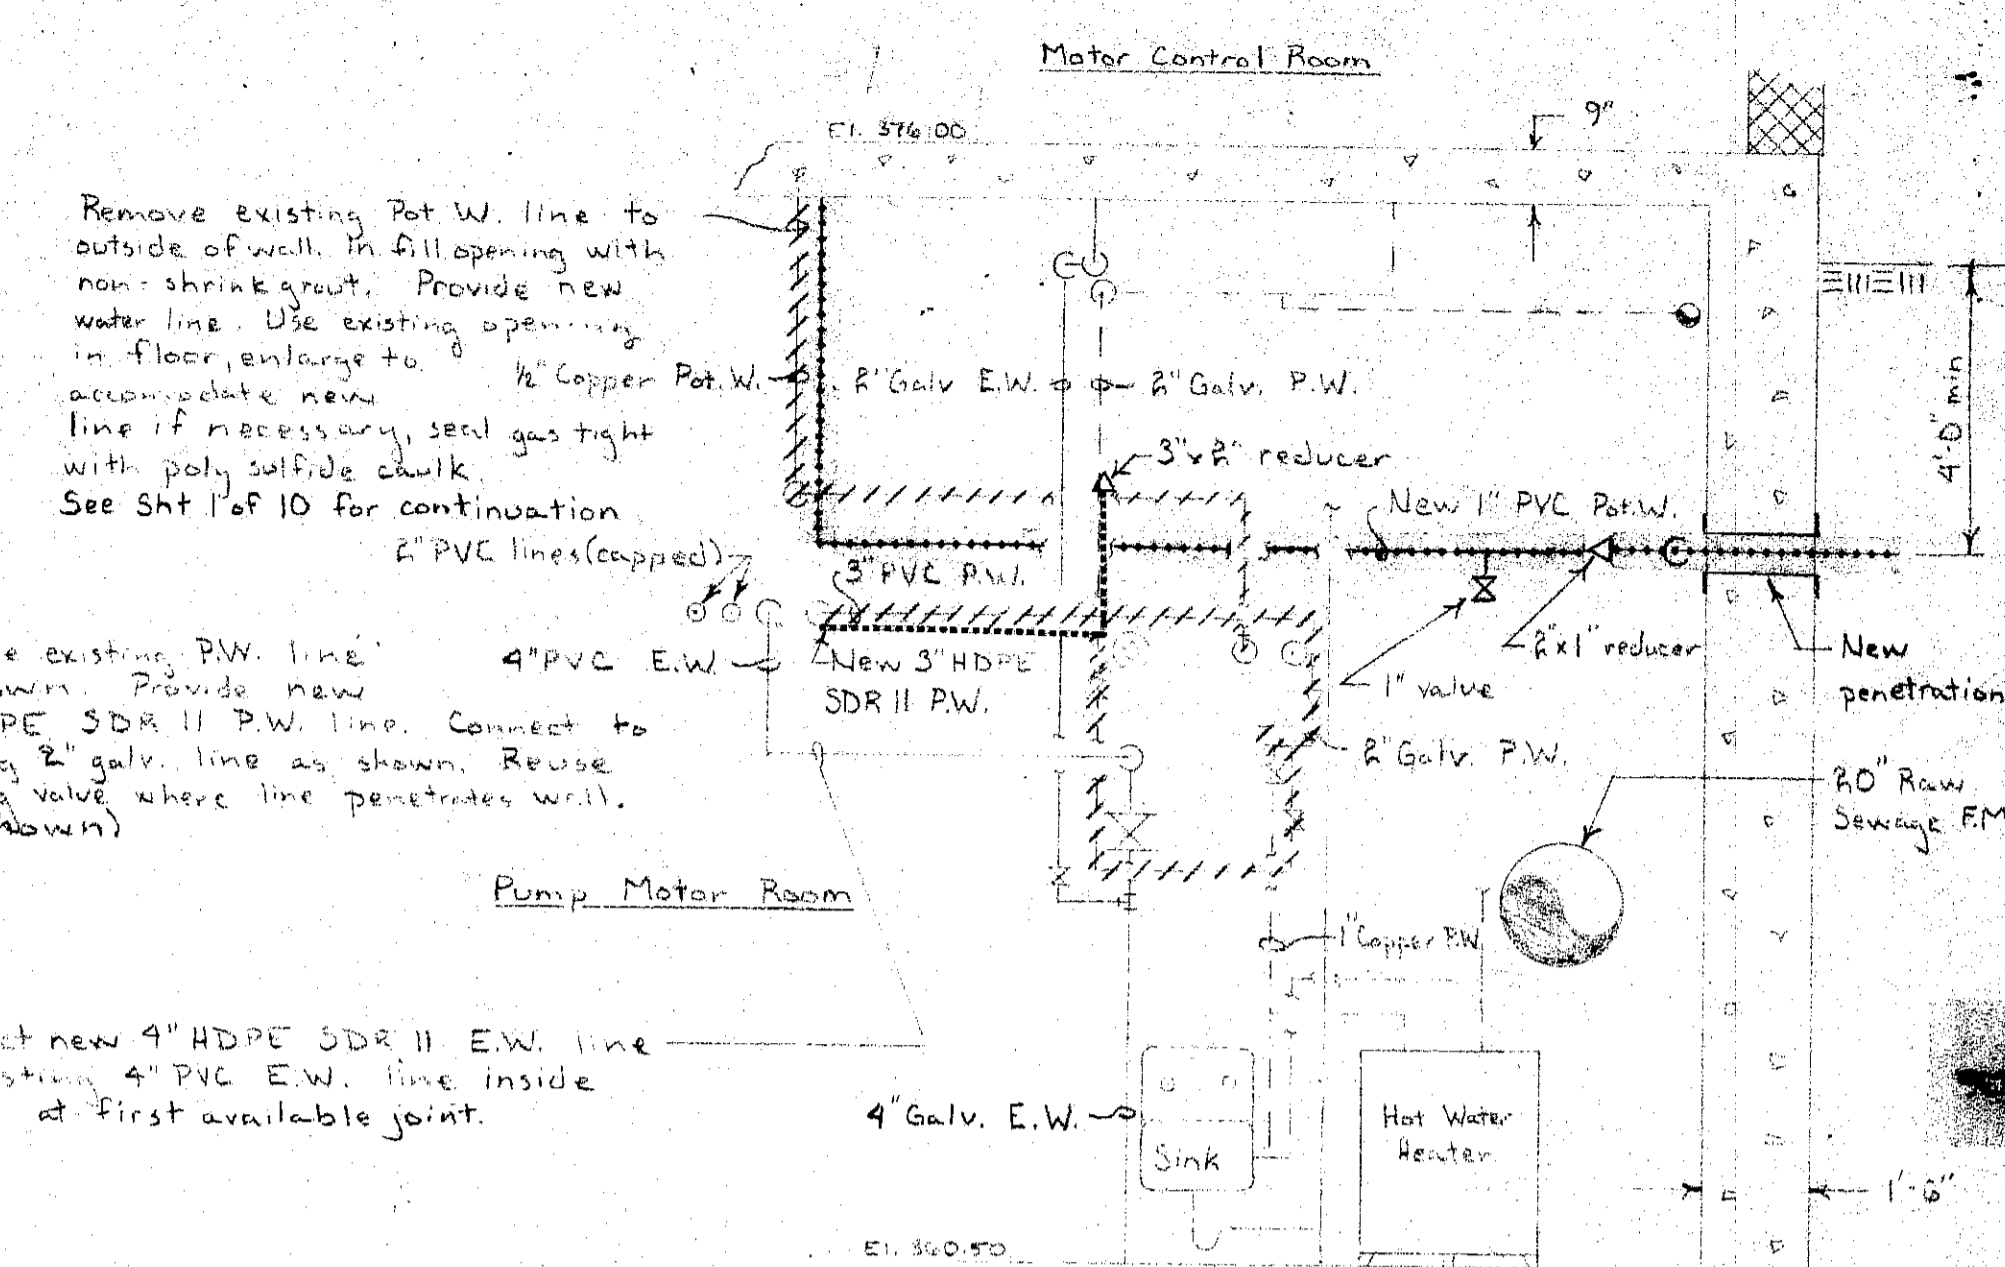 Motor Control Room
El. 376.00
9"
Remove existing Pot. W. line to
outside of wall. In fill opening with
non-shrink grout. Provide new
water line. Use existing opening
in floor, enlarge to
accomodate new
line if necessary, seal gas tight
with poly sulfide caulk.
See Sht 1 of 10 for continuation
1/2" Copper Pot. W.
2" Galv E.W.
2" Galv. P.W.
3"x2" reducer
New 1" PVC Pot. W.
4'-0" min
2" PVC lines (capped)
3" PVC P.W.
e existing P.W. line
own. Provide new
PE SDR 11 P.W. line. Connect to
g 2" galv. line as shown. Reuse
g valve where line penetrates wall.
hown)
4" PVC E.W.
New 3" HDPE
SDR 11 P.W.
1" valve
2"x1" reducer
New
penetration
2" Galv. P.W.
20" Raw
Sewage F.M
Pump Motor Room
1" Copper P.W.
ct new 4" HDPE SDR 11 E.W. line
sting 4" PVC E.W. line inside
at first available joint.
4" Galv. E.W.
Sink
Hot Water
Heater
1'-6"
El. 360.50